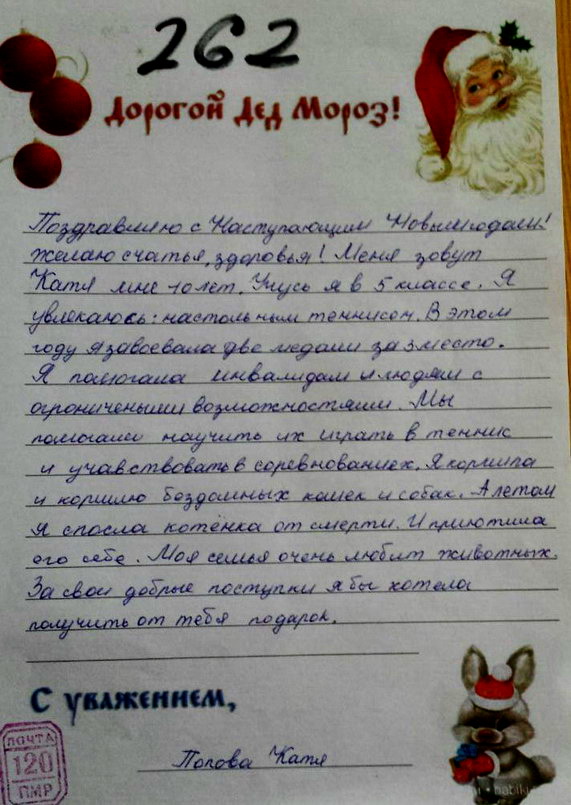 262
Дорогой Дед Мороз!
Поздравляю с Наступающим Новым годом!
желаю счатья, здоровья! Меня зовут
Катя мне 10 лет. Учусь я в 5 классе. Я
увлекаюсь: настольным теннисом. В этом
году я завоевала две медали за 3 место.
Я помогала инвалидам и людям с
ограничеными возможностями. Мы
помогали научить их играть в теннис
и учавствовать в соревнованиех. Я кормила
и кормлю бездомных кошек и собак. А летом
я спосла котёнка от смерти. И приютила
его себе. Моя семья очень любит животных.
За свои добрые поступки я бы хотела
получить от тебя подарок.
С уважением,
Попова Катя
ПОЧТА
120
ПМР